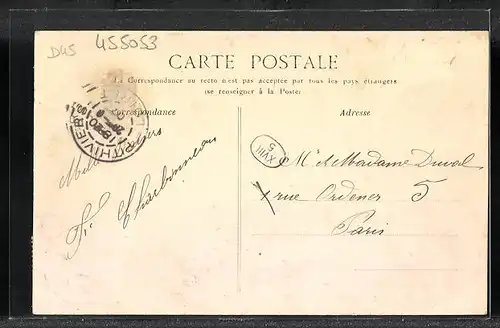 D45
455053
CARTE POSTALE
La Correspondance au recto n'est pas acceptée par tous les pays étrangers
(se renseigner à la Poste)
Correspondance
Adresse
PITHIVIERS
F. Charbonneau
XVIII
5
Mr et Madame Duval
rue Ordener 5
Paris